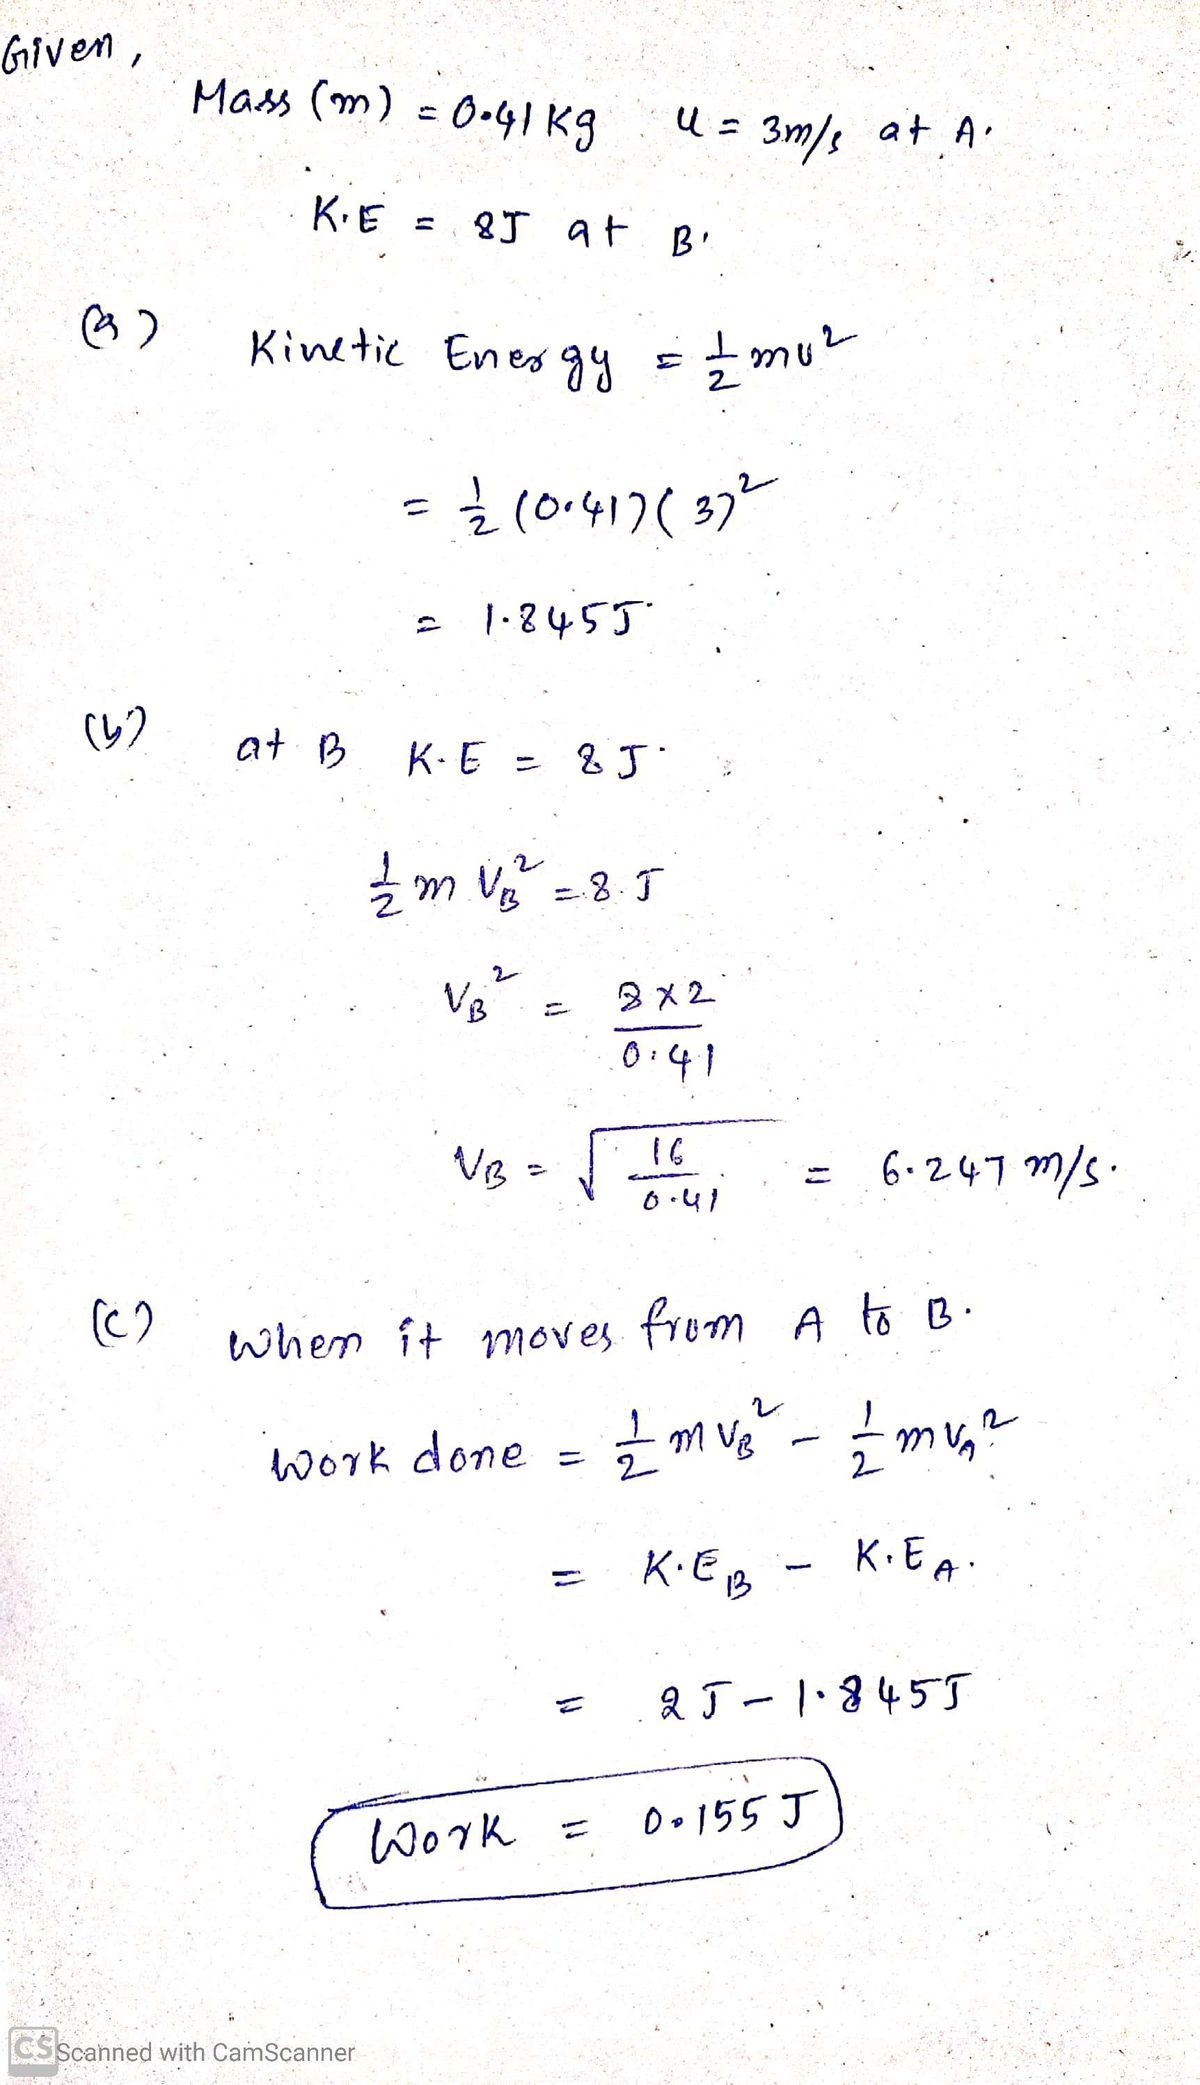 Given,
Mass (m) = 0.41 Kg u = 3m/s at A.
K.E = 8J at B.
(a) Kinetic Energy = 1/2 mu²
= 1/2 (0.41)(3)²
= 1.845J
(b) at B K.E = 8J.
1/2 m VB² = 8.J
VB² = 8×2 / 0.41
VB = √(16 / 0.41) = 6.247 m/s.
(c) When it moves from A to B.
Work done = 1/2 m VB² - 1/2 m VA²
= K.E B - K.E A.
= 2J - 1.845J
Work = 0.155 J
CS Scanned with CamScanner